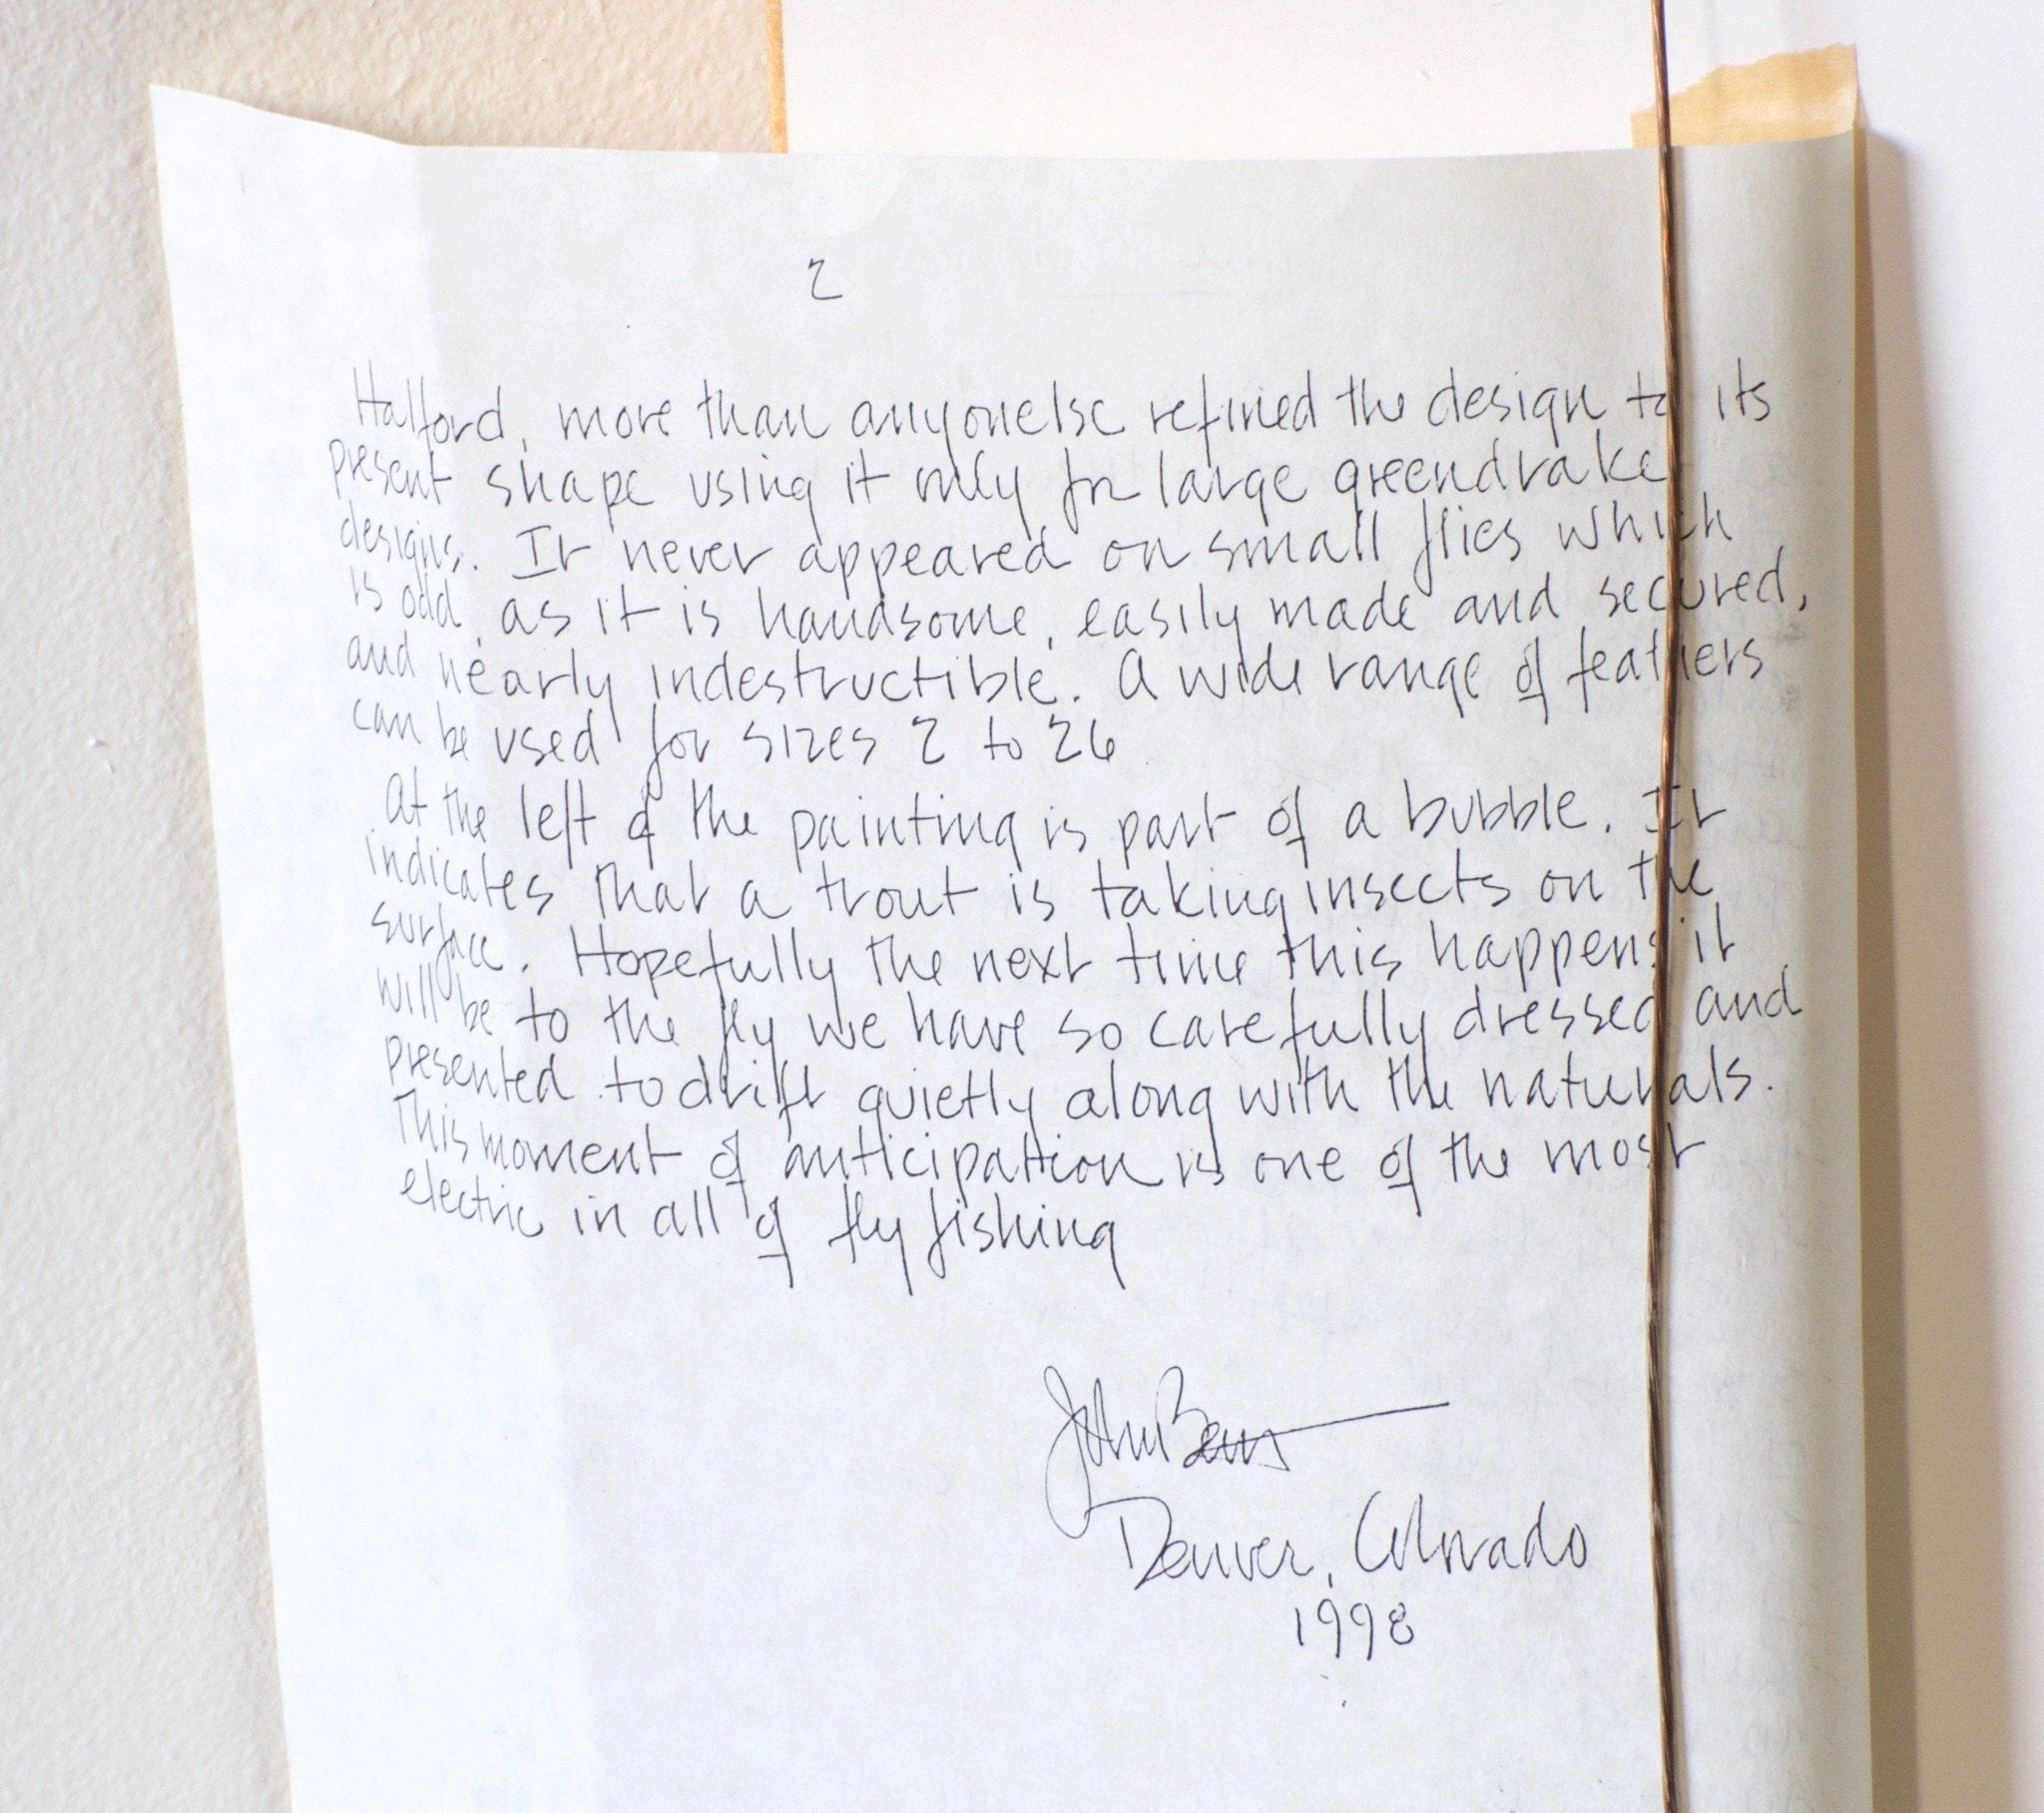 2
Halford, more than anyonelse refined the design to its
present shape using it only for large greendrake
designs. It never appeared on small flies which
is odd, as it is handsome, easily made and secured,
and nearly indestructible. A wide range of feathers
can be used for sizes 2 to 26
At the left of the painting is part of a bubble. It
indicates that a trout is taking insects on the
surface. Hopefully the next time this happens it
will be to the fly we have so carefully dressed and
presented to drift quietly along with the naturals.
This moment of anticipation is one of the most
electric in all of fly fishing
John
Denver, Colorado
1998